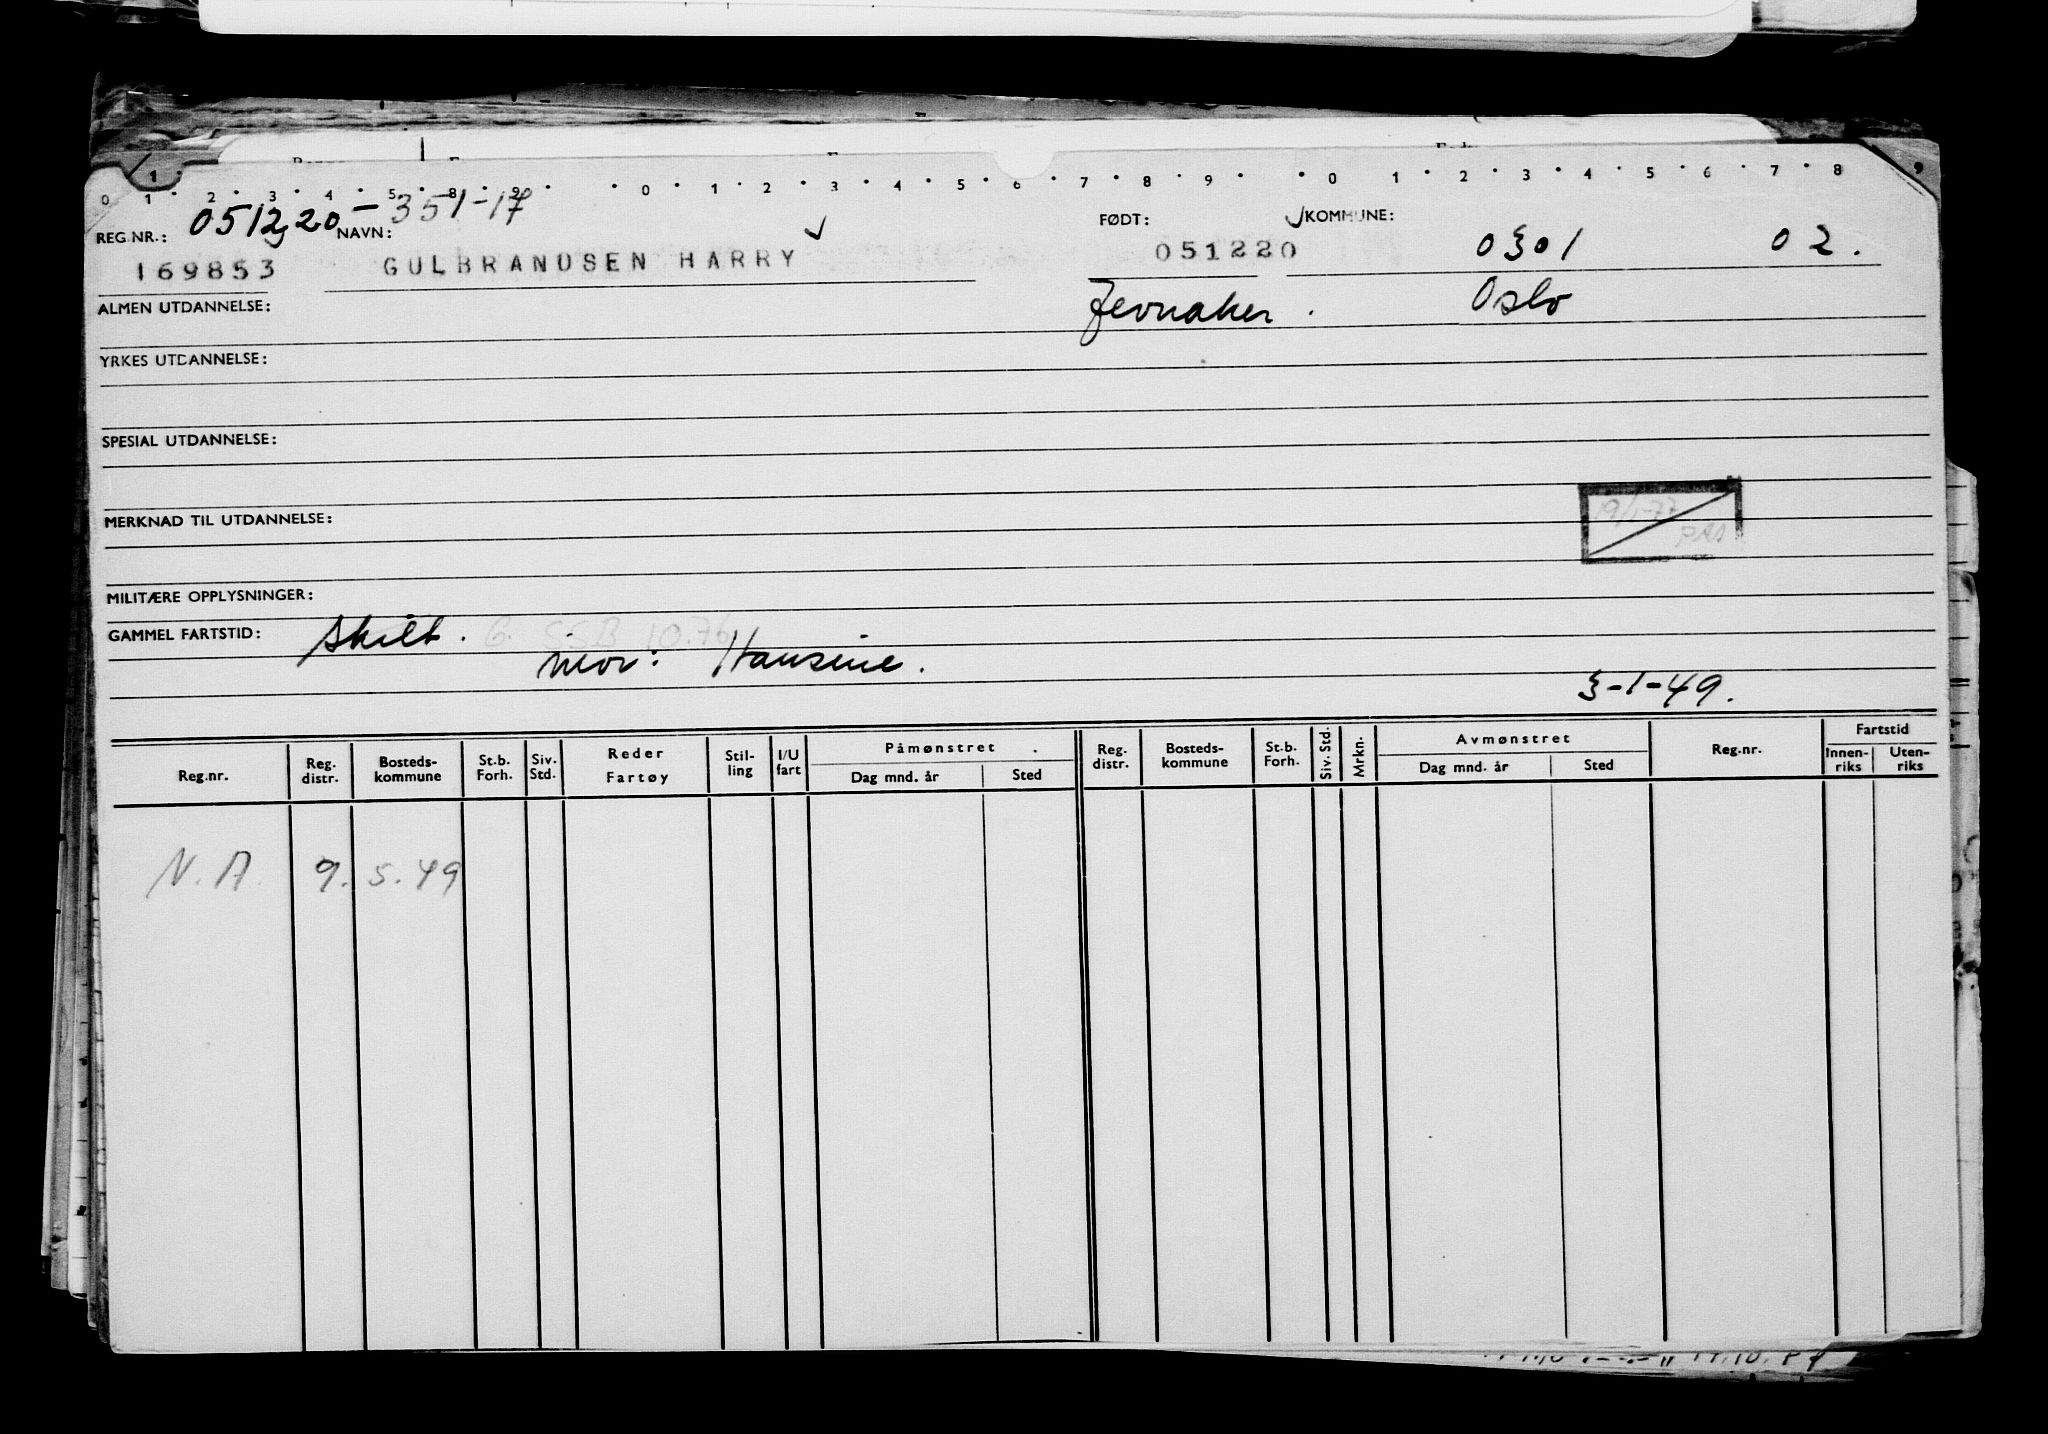 0 1 2 3 4 5 8 9 0 1 2 3 4 5 6 7 8 9 0 1 2 3 4 5 6 7 8 9
1
051220-351-17
REG.NR.: NAVN: FØDT: KOMMUNE:
169853 GULBRANDSEN HARRY 051220 0301 02.
ALMEN UTDANNELSE: Jevnaker. Oslo
YRKES UTDANNELSE:
SPESIAL UTDANNELSE:
MERKNAD TIL UTDANNELSE:
MILITÆRE OPPLYSNINGER:
GAMMEL FARTSTID: skilt. G. SSB 10.76
mor: Hansine.
3-1-49.
Reg.nr. Reg. distr. Bosteds-kommune St.b. Forh. Siv. Std. Reder Fartøy Stil-ling I/U fart Påmønstret Dag mnd. år Sted Reg. distr. Bosteds-kommune St.b. Forh. Siv. Std. Mrkn. Avmønstret Dag mnd. år Sted Reg.nr. Fartstid Innen-riks Uten-riks
N.A. 9. 5. 49